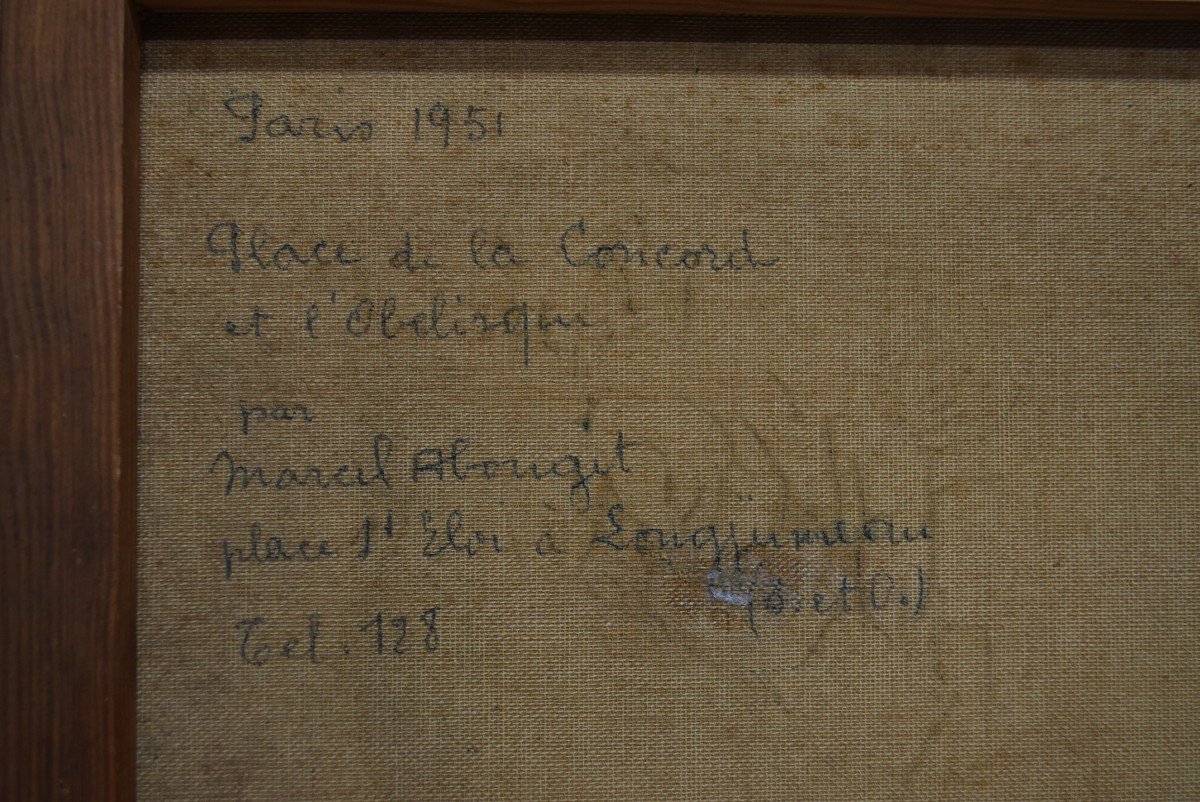 Paris 1951
Place de la Concord
et l'Obelisque
par
Marcel Abougit
place St Eloi à Longjumeau
(S. et O.)
Tel. 128